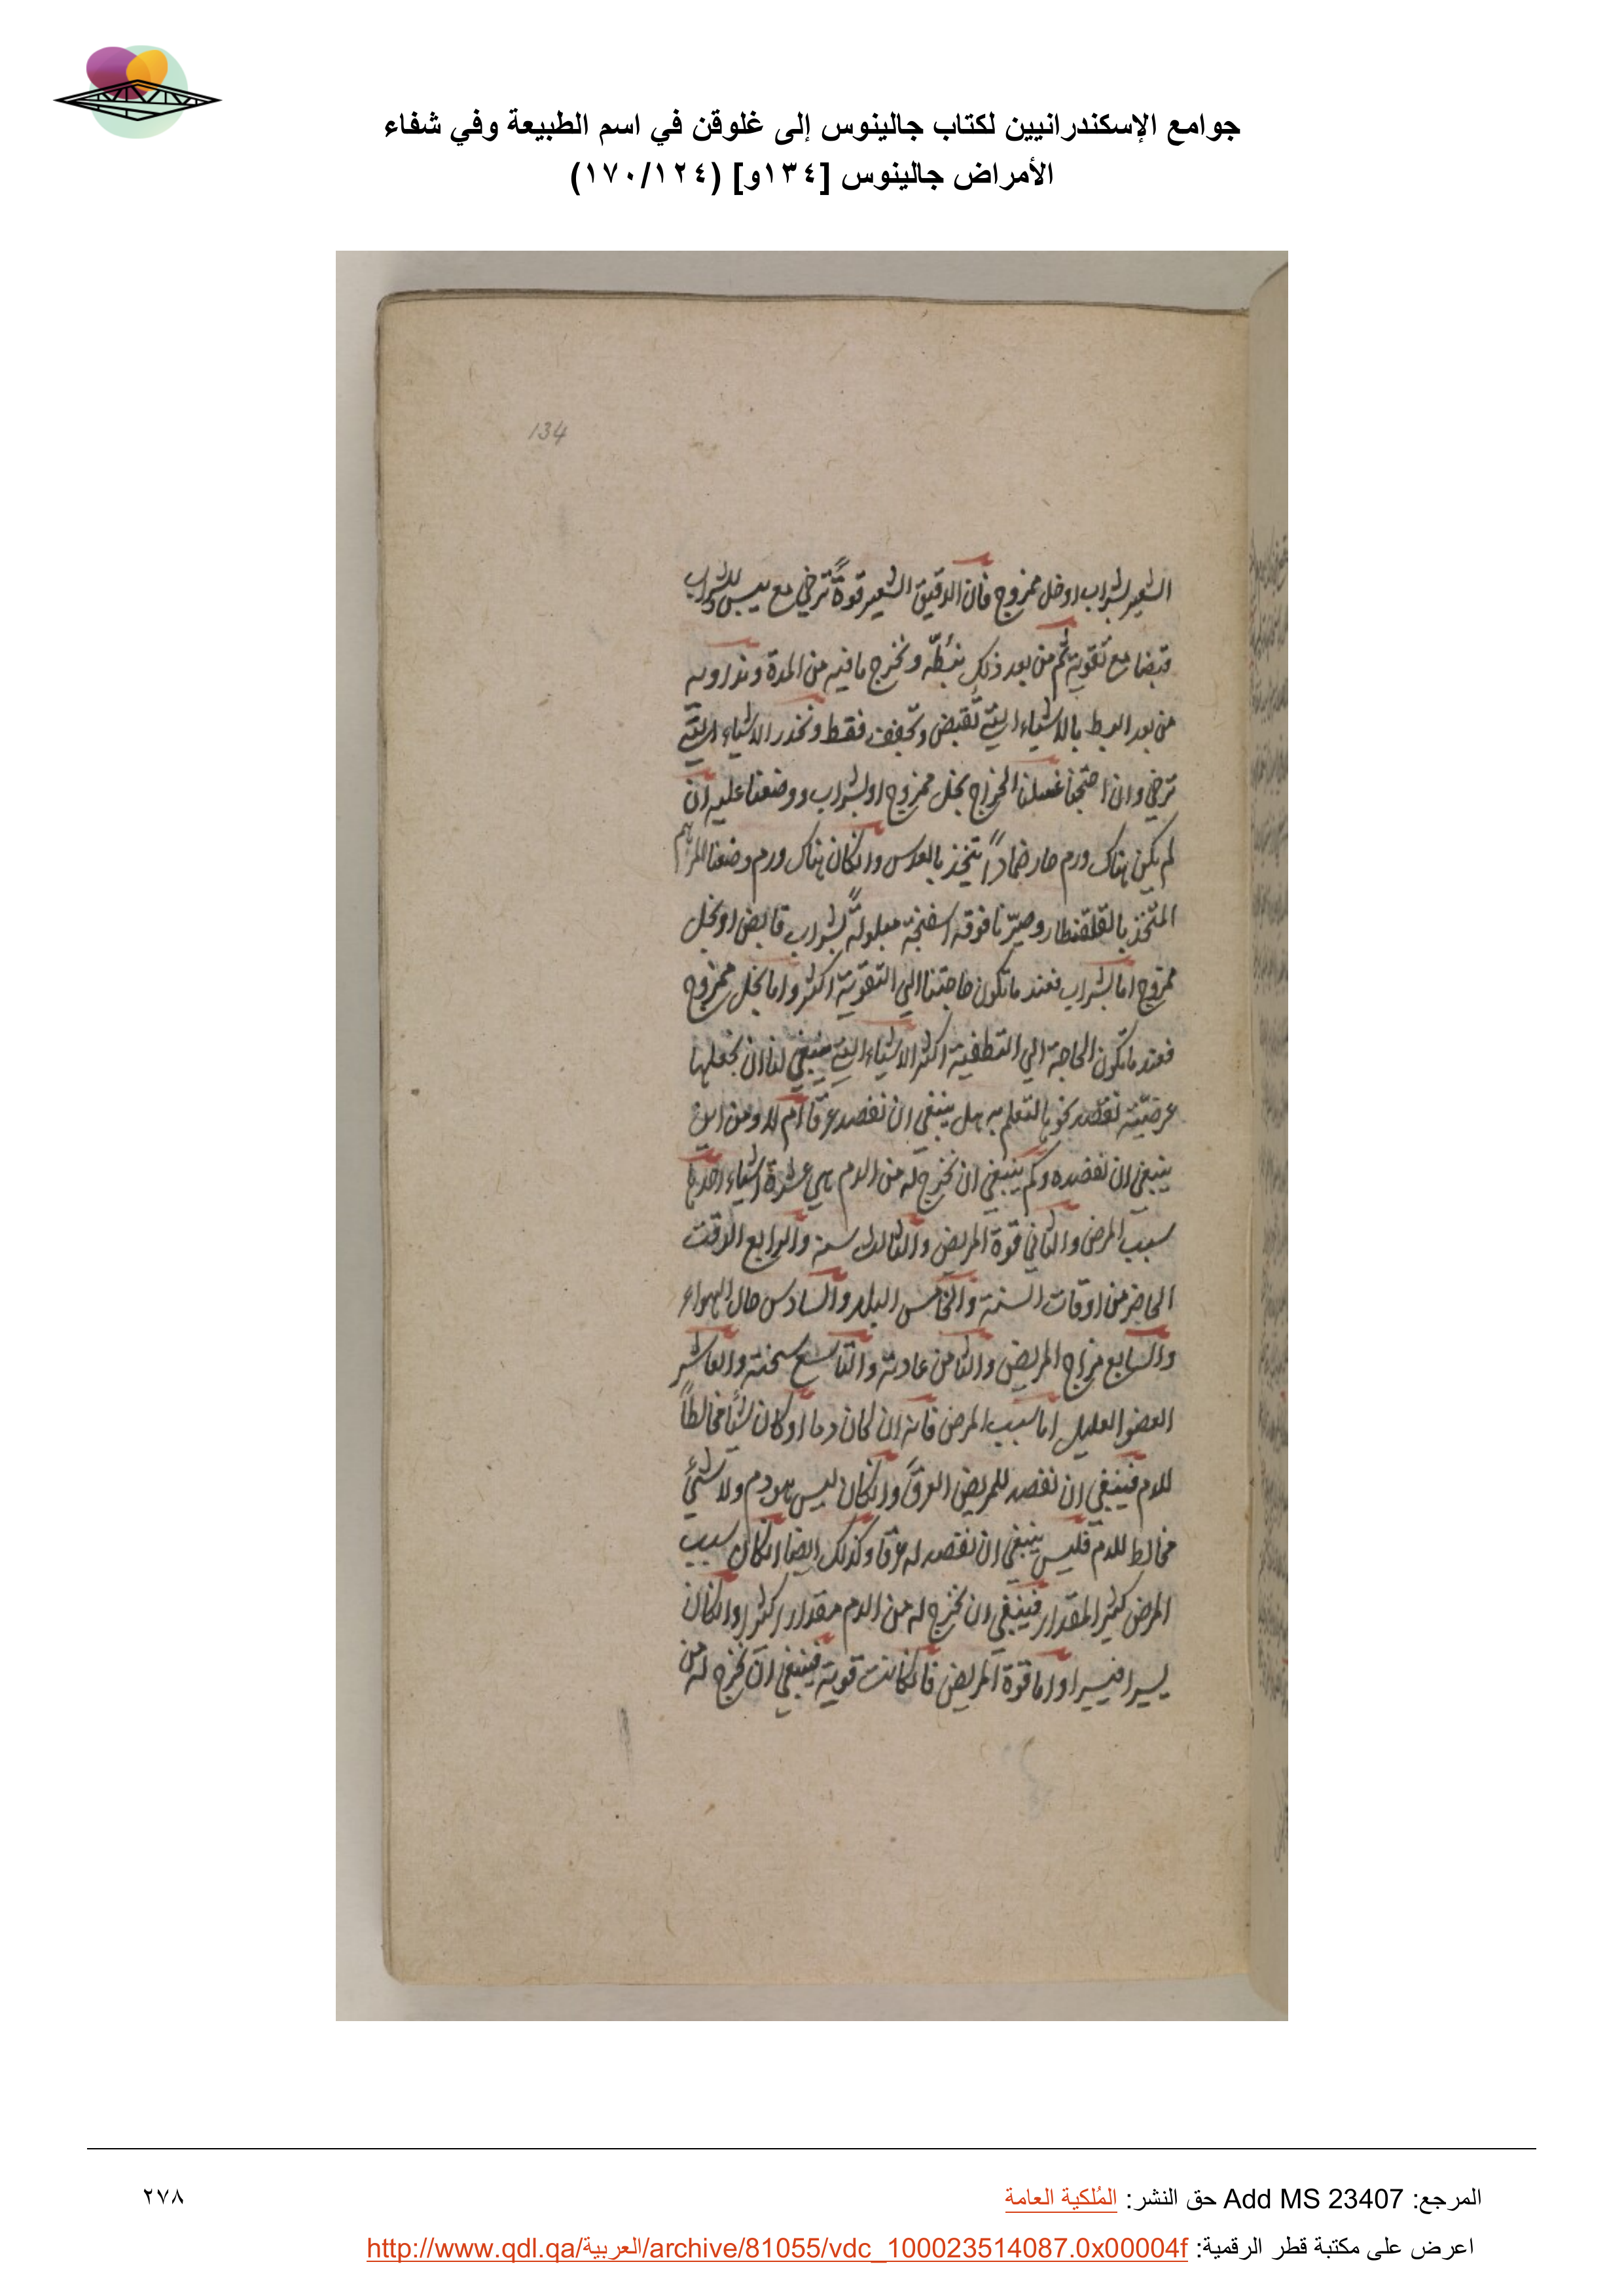 جوامع الإسكندرانيين لكتاب جالينوس إلى غلوقن في اسم الطبيعة وفي شفاء
الأمراض جالينوس [١٣٤و] (١٧٠/١٢٤)
134
الشعير بشراب او خل ممزوج فان الدقيق الشعير قوةً ترخي مع يبس وللشراب
قبضا مع تقوية ثم من بعد ذلك نبطّه ونخرج ما فيه من المدة ونداويه
من بعد البط بالاشياء التي تقبض وتجفف فقط ونحذر الاشياء التي
ترخي وان احتجنا غسلنا الخراج بخل ممزوج او بشراب ووضعنا عليه ان
لم يكن هناك ورم حار ضمادًا يتخذ بالعدس وانكان هناك ورم وضعنا المرهم
المتخذ بالقلقنطار وصيّرنا فوقه اسفنجة مبلولةً بشراب قابض او بخل
ممزوج اما بشراب فعند ما تكون حاجتنا الي التقوية اكثر واما بخل ممزوج
فعند ما تكون الحاجة الي التطفية اكثر الاشياء التي ينبغي لنا ان نجعلها
عرضيّة نقصد نحوها لتعلم به هل ينبغي ان نفصد عرقا ام لا ومن اين
ينبغي ان نفصده وكم ينبغي ان نخرج له من الدم هي عشرة اشياء احدها
سبب المرض والثاني قوة المريض والثالث سنه والرابع الوقت
الحاضر من اوقات السنة والخامس البلد والسادس حال الهواء
والسابع مزاج المريض والثامن عادته والتاسع سحنته والعاشر
العضو العليل اما سبب المرض فانه ان كان دما او كان شيًا مخالطاً
للدم فينبغي ان نفصد للمريض العرق وانكان ليس هو دم ولا شيءٌ
مخالط للدم فليس ينبغي ان نفصد له عرقا وكذلك ايضا انكان سبب
المرض كثير المقدار فينبغي ان نخرج له من الدم مقدارا كثيرا وانكان
يسيرا فيسيرا واما قوة المريض فانكانت قوية فينبغي ان نخرج له من
المرجع: Add MS 23407 حق النشر: المُلكية العامة
٢٧٨
اعرض على مكتبة قطر الرقمية: http://www.qdl.qa/العربية/archive/81055/vdc_100023514087.0x00004f